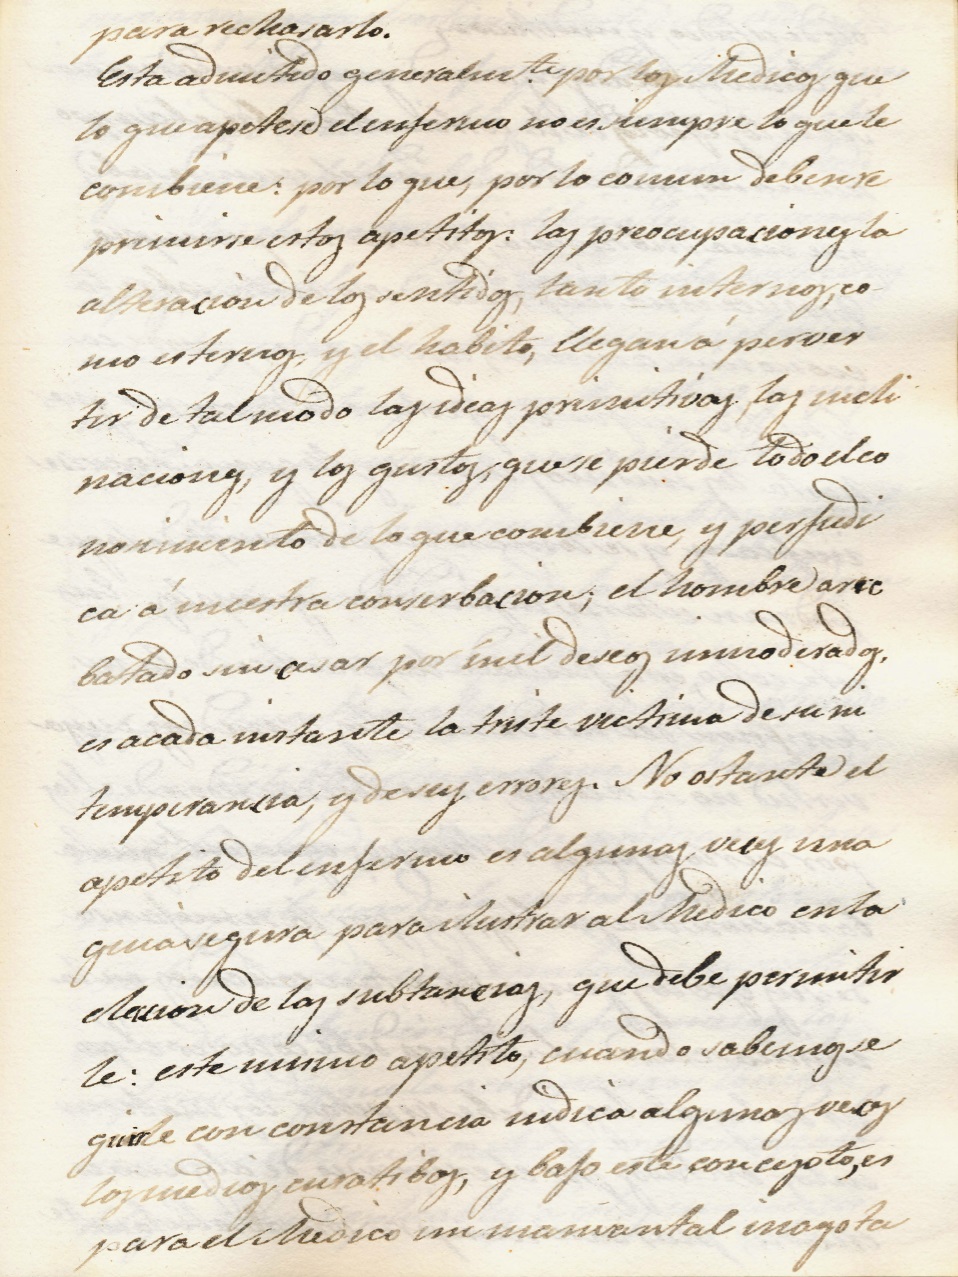 para rechasarlo.
Esta admitido generalm.te por los Medicos que
lo que apetese el enfermo no es siempre lo que le
combiene: por lo que, por lo comun deben re
primirse estos apetitos: las preocupaciones la
alteracion de los sentidos, tanto internos, co-
mo esternos, y el habito, llegan á perver
tir de tal modo las ideas primitivas, las incli
naciones, y los gustos, que se pierde todo el co
nocimiento de lo que combiene, y perjudi
ca á nuestra conserbacion; el hombre arre
batado sin cesar por mil deseos inmoderados,
es acada instante la triste victima de su in
temperancia, y de sus errores. No ostante el
apetito del enfermo es algunas veces una
guia segura para ilustrar al Medico en la
elecion de las subtancias, que debe permitir
le: este mismo apetito, cuando sabemos se
guirle con constancia indica algunas veces
los medios curatibos, y bajo este concepto, es
para el Medico un manantal inagota